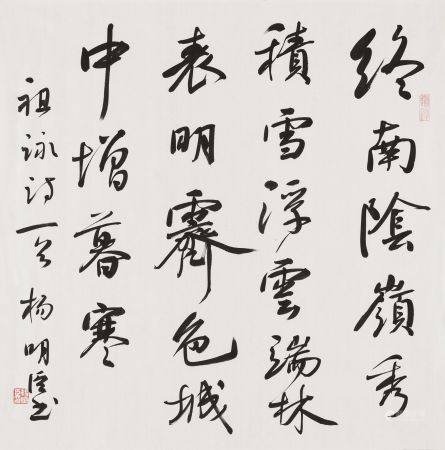 終南陰嶺秀
積雪浮雲端林
表明霽色城
中增暮寒
祖詠詩一首楊明臣書